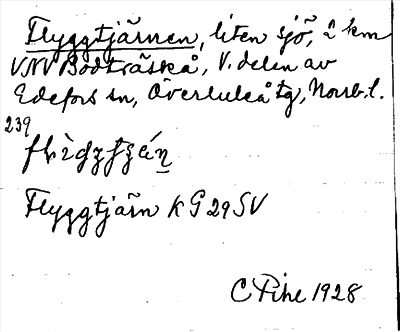 Flyggtjärnen, liten sjö, 2 km
VNV Bodträskå, V. delen av
Edefors sn, Överluleå tg, Norrb. l.
239
Flyggtjärn k G 29 SV
C Pihl 1928